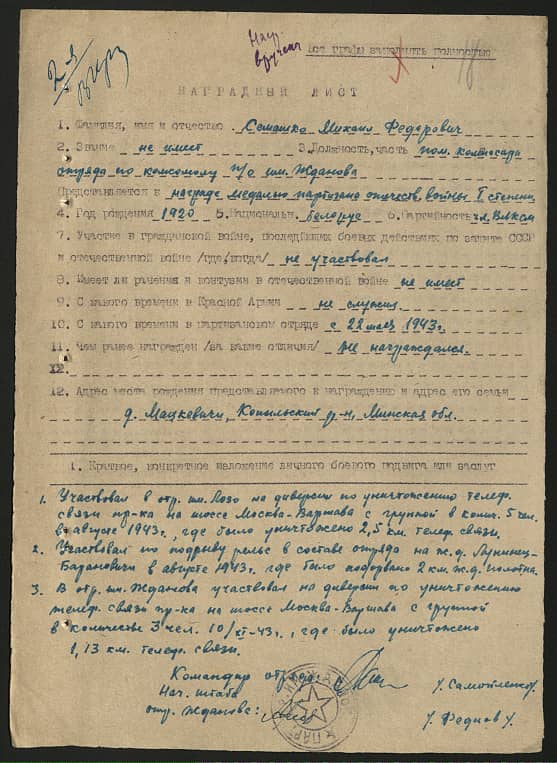 Наг. вручен
все графы заполнять полностью
2-я
НАГРАДНЫЙ ЛИСТ
1. Фамилия, имя и отчество Семашко Михаил Федорович
2. Звание не имеет 3. Должность, часть пом. комиссара
отряда по комсомолу п/о им. Жданова
Представляется к награде медалью партизана отечеств. войны I степени
4. Год рождения 1920 5. Националь. белорус 6. Партийность чл. ВЛКСМ
7. Участие в гражданской войне, последующих боевых действиях по защите СССР
и отечественной войне /где, когда/ не участвовал
8. Имеет ли ранения и контузии в отечественной войне не имеет
9. С какого времени в Красной Армии не служил
10. С какого времени в партизанском отряде с 22 мая 1943 г.
11. Чем ранее награжден /за какие отличия/ не награждался.
12. Адрес места рождения представляемого к награждению и адрес его семьи
д. Мацкевичи, Копыльский р-н, Минская обл.
1. Краткое, конкретное изложение личного боевого подвига или заслуг
1. Участвовал в отр. им. Лазо на диверсии по уничтожению телеф.
связи пр-ка на шоссе Москва-Варшава с группой в колич. 5 чел.
в августе 1943 г., где было уничтожено 2,5 км. телеф. связи.
2. Участвовал по подрыву рельс в составе отряда на ж.д. Лунинец-
Барановичи в августе 1943 г. где было подорвано 2 км. ж.д. полотна.
3. В отр. им. Жданова участвовал на диверсии по уничтожению
телеф. связи пр-ка на шоссе Москва-Варшава с группой
в количестве 3 чел. 10/XI-43 г., где было уничтожено
1,13 км. телеф. связи.
Командир отряда: /Самойленко/
Нач. штаба
отр. Жданова: /Федков/